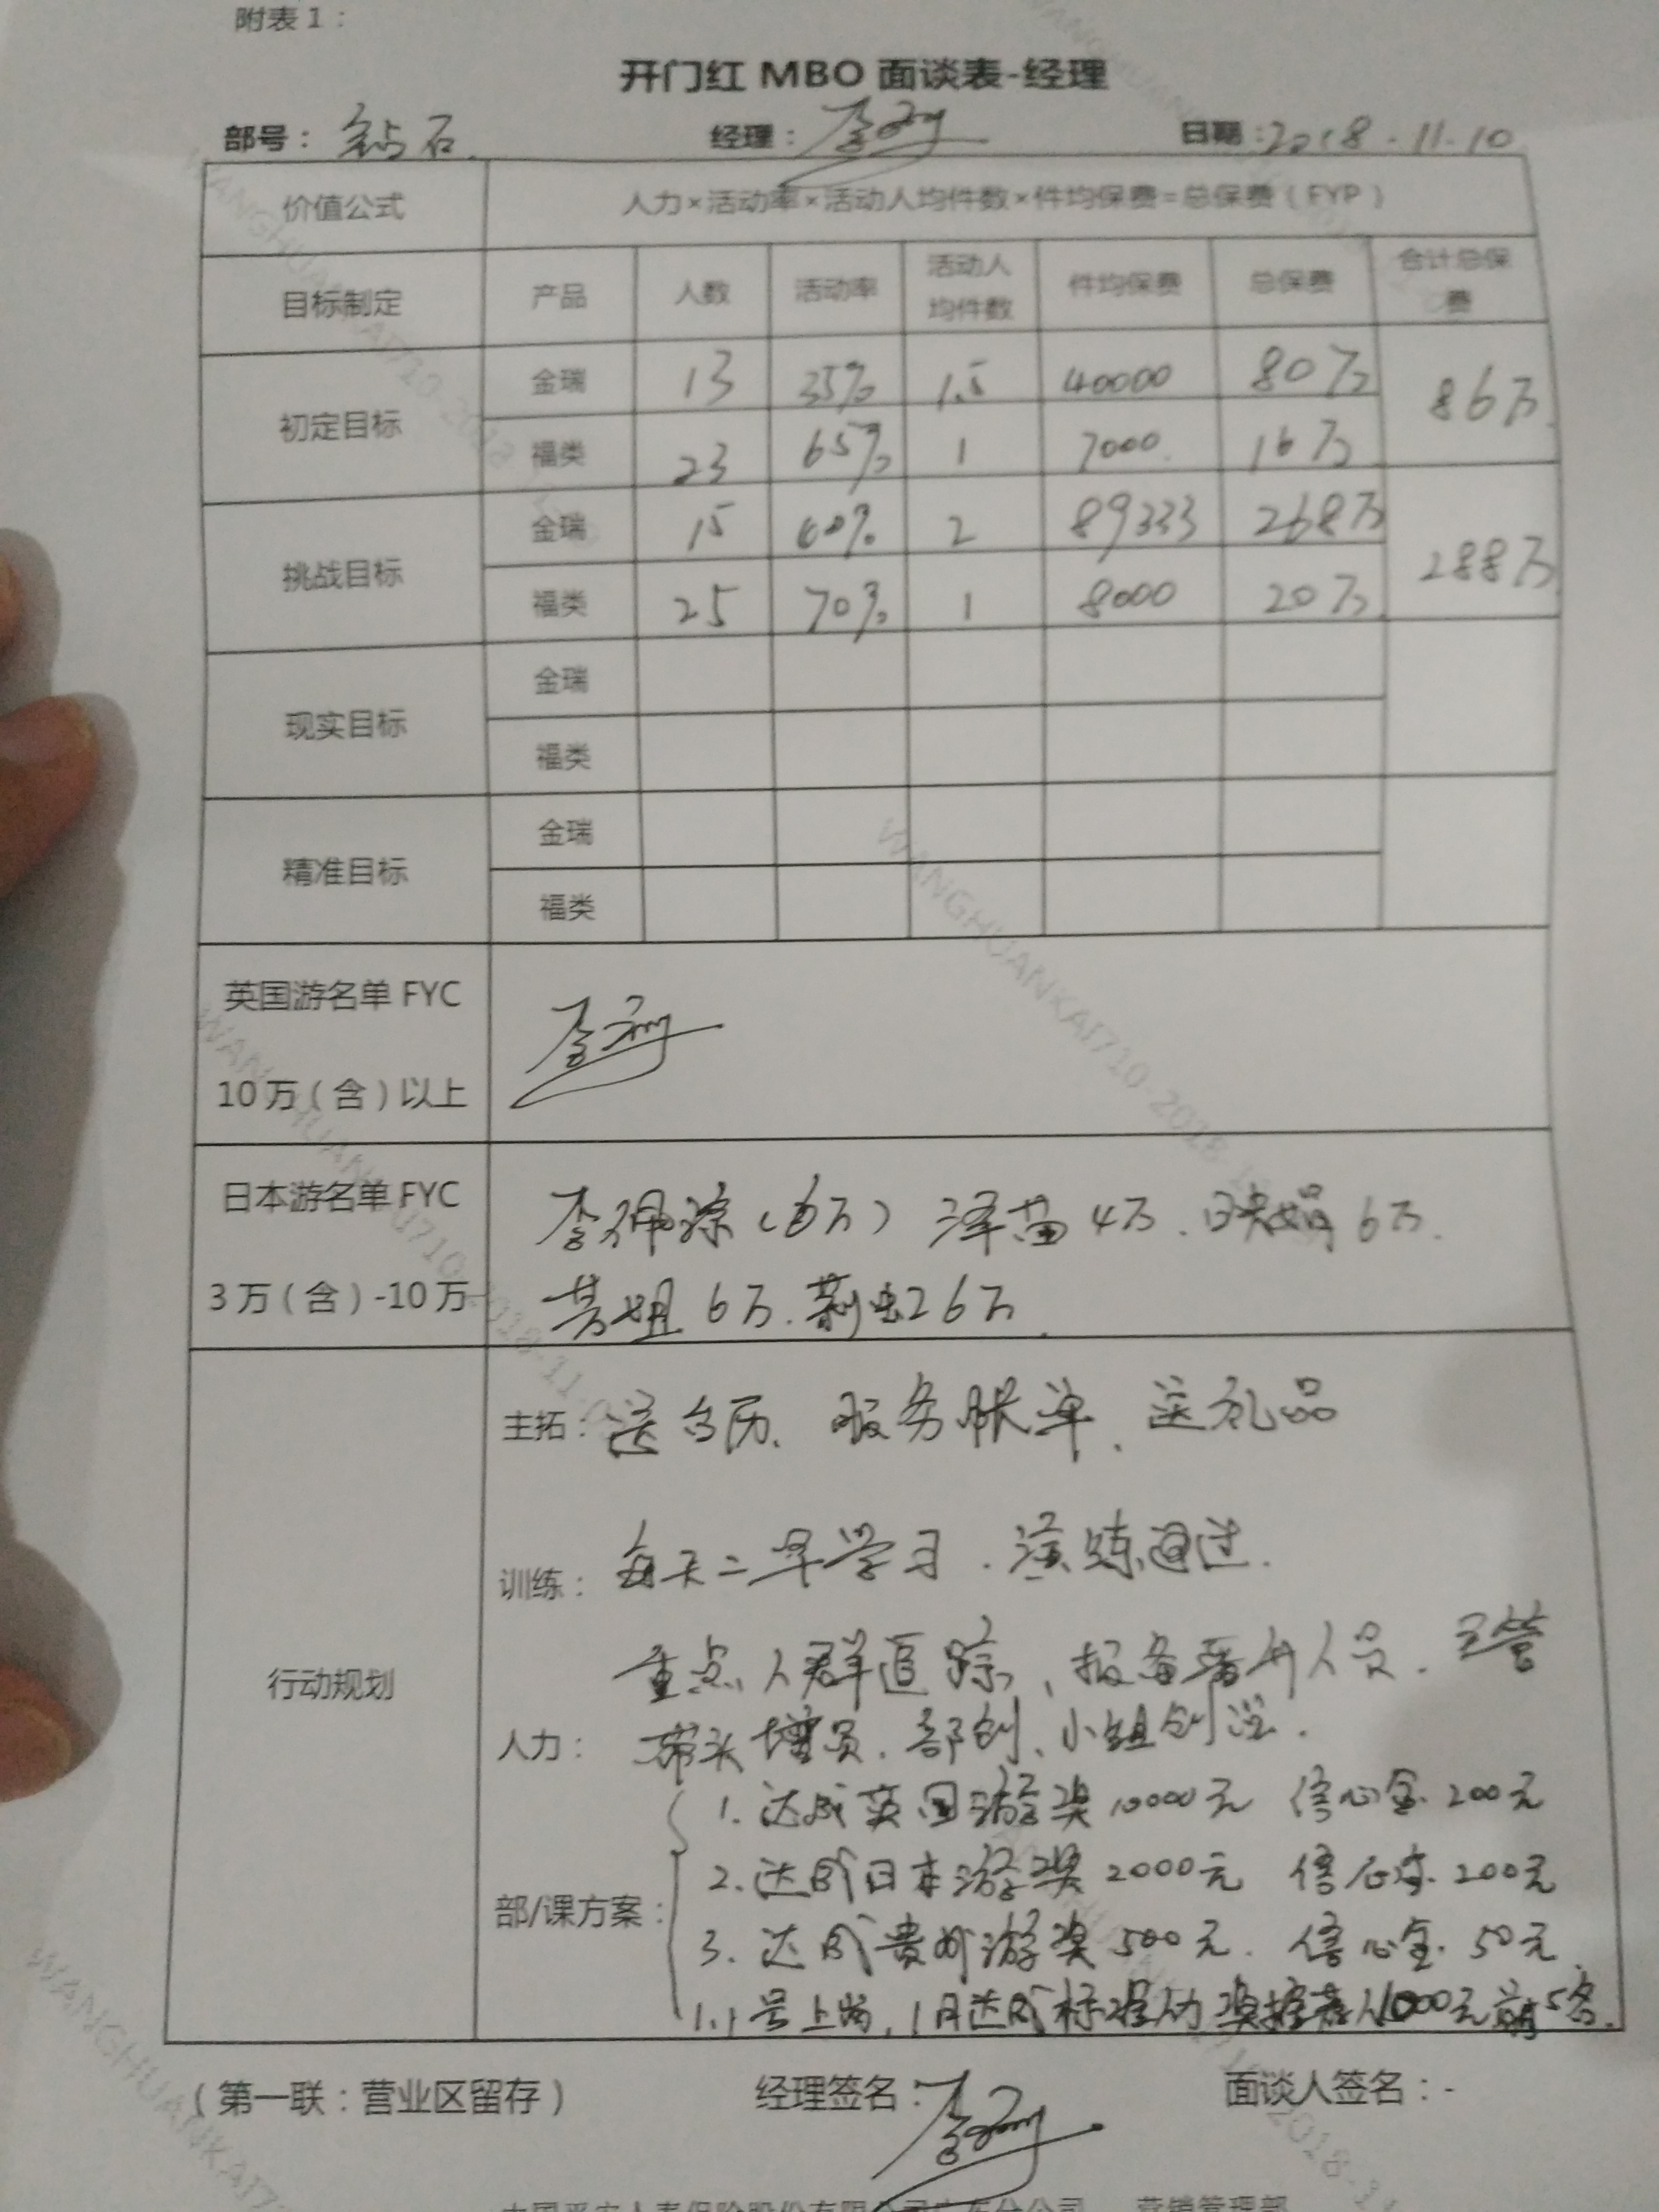 附表1：
开门红 MBO 面谈表-经理
部号：钻石 经理： 日期：2018.11.10
价值公式 人力×活动率×活动人均件数×件均保费=总保费（FYP）
目标制定 产品 人数 活动率 活动人均件数 件均保费 总保费 合计总保费
初定目标 金瑞 13 35% 1.5 40000 80万 86万
福类 23 65% 1 7000 16万
挑战目标 金瑞 15 60% 2 89333 268万 288万
福类 25 70% 1 8000 20万
现实目标 金瑞
福类
精准目标 金瑞
福类
英国游名单 FYC
10万（含）以上
日本游名单 FYC 李佩琼（6万） 泽苗4万、映娟6万.
3万（含）-10万 姐6万. 26万
行动规划
主拓：送台历、服务账单、送礼品
训练：每天二早学习.演练通过.
重点人群追踪、报备晋升人员.主管
人力：带头增员.部创、小组创.
部/课方案：
1.达成英国游奖10000元 信心金200元
2.达成日本游奖2000元 信心金200元
3.达成贵州游奖500元. 信心金50元.
1.1号上岗,1月达成标准的奖推荐人1000元前5名.
（第一联：营业区留存） 经理签名： 面谈人签名：-
中国平安人寿保险股份有限公司广东分公司 营销管理部
WANGHUANKAI710-2018-11